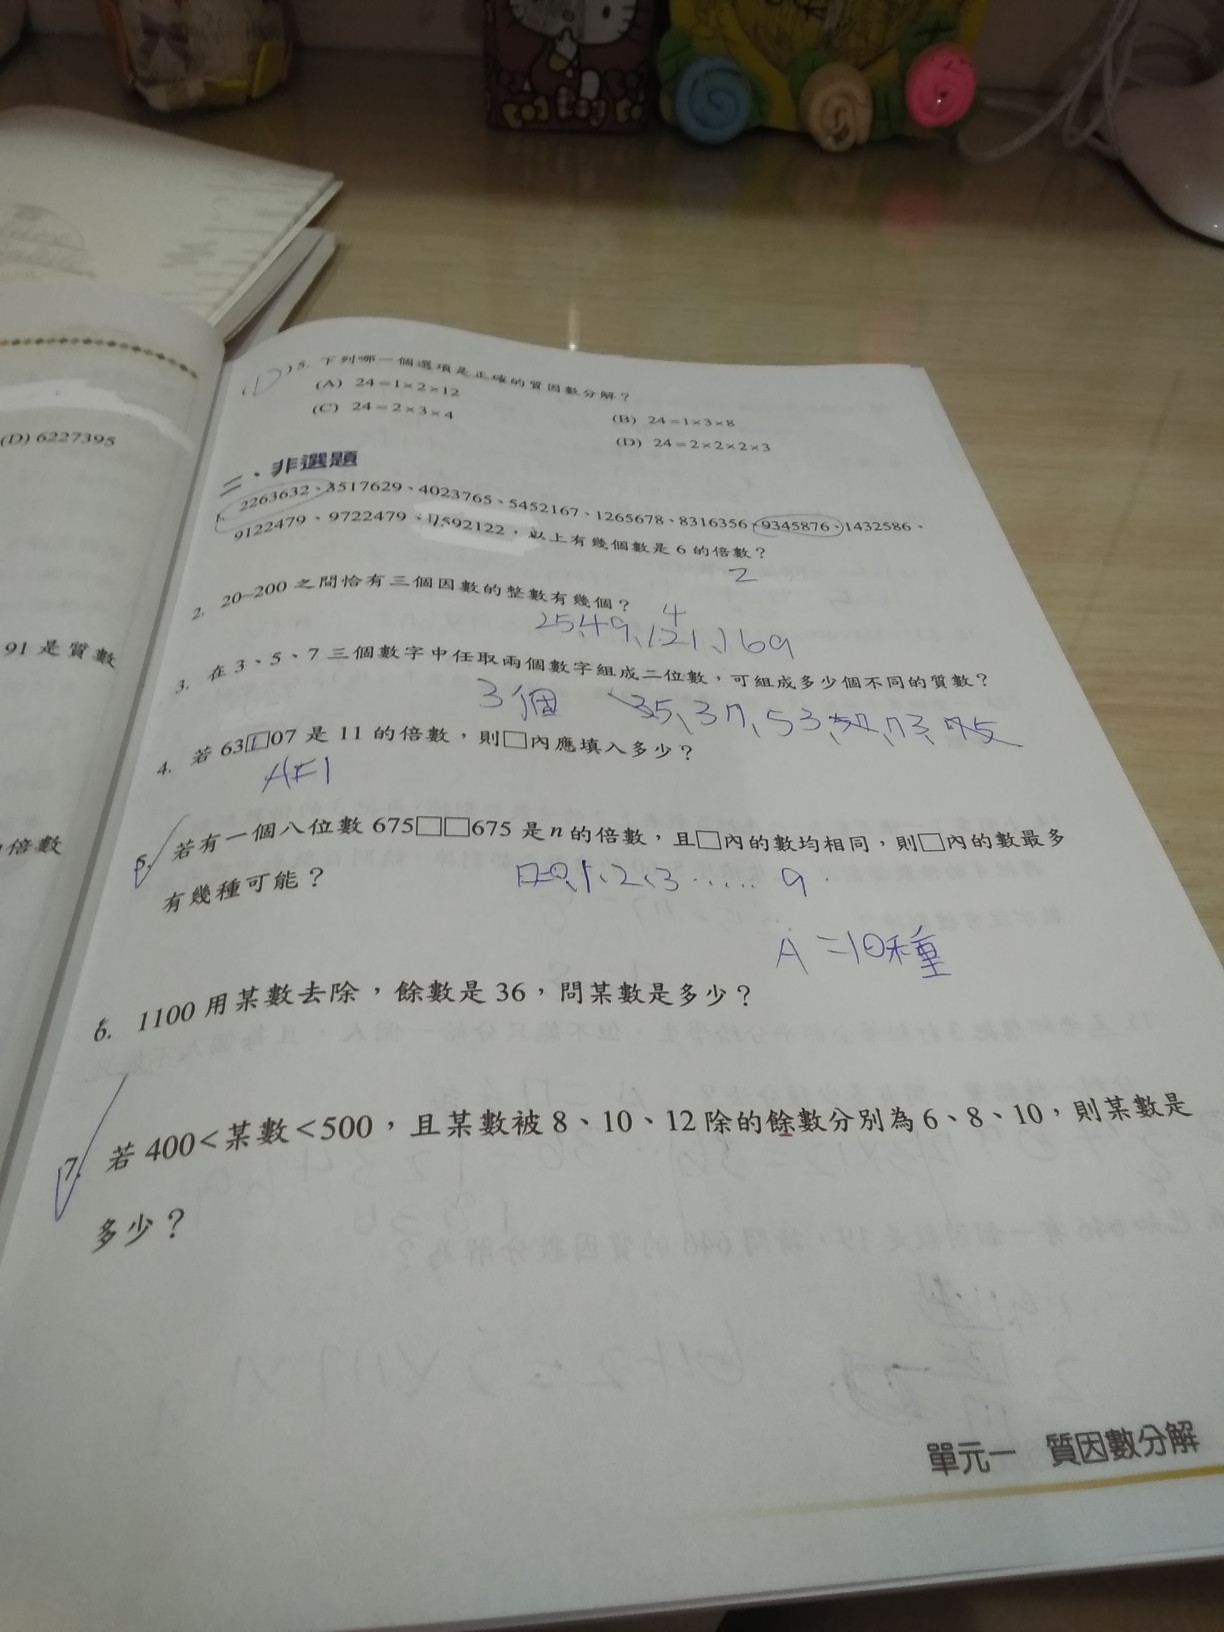 (D) 6227395
91 是質數
倍數
(D) 5. 下列哪一個選項是正確的質因數分解？
(A) 24=1×2×12
(B) 24=1×3×8
(C) 24=2×3×4
(D) 24=2×2×2×3
二、非選題
1. 2263632、3517629、4023765、5452167、1265678、8316356、9345876、1432586、
9122479、9722479、7592122，以上有幾個數是 6 的倍數？
2
2. 20–200 之間恰有三個因數的整數有幾個？ 4
25,49,121,169
3. 在 3、5、7 三個數字中任取兩個數字組成二位數，可組成多少個不同的質數？
3個 35、37、53、57、73、75
4. 若 63□07 是 11 的倍數，則□內應填入多少？
A=1
5. 若有一個八位數 675□□675 是 n 的倍數，且□內的數均相同，則□內的數最多
有幾種可能？
□=0、1、2、3 ...... 9
A=10種
6. 1100 用某數去除，餘數是 36，問某數是多少？
7. 若 400<某數<500，且某數被 8、10、12 除的餘數分別為 6、8、10，則某數是
多少？
單元一 質因數分解